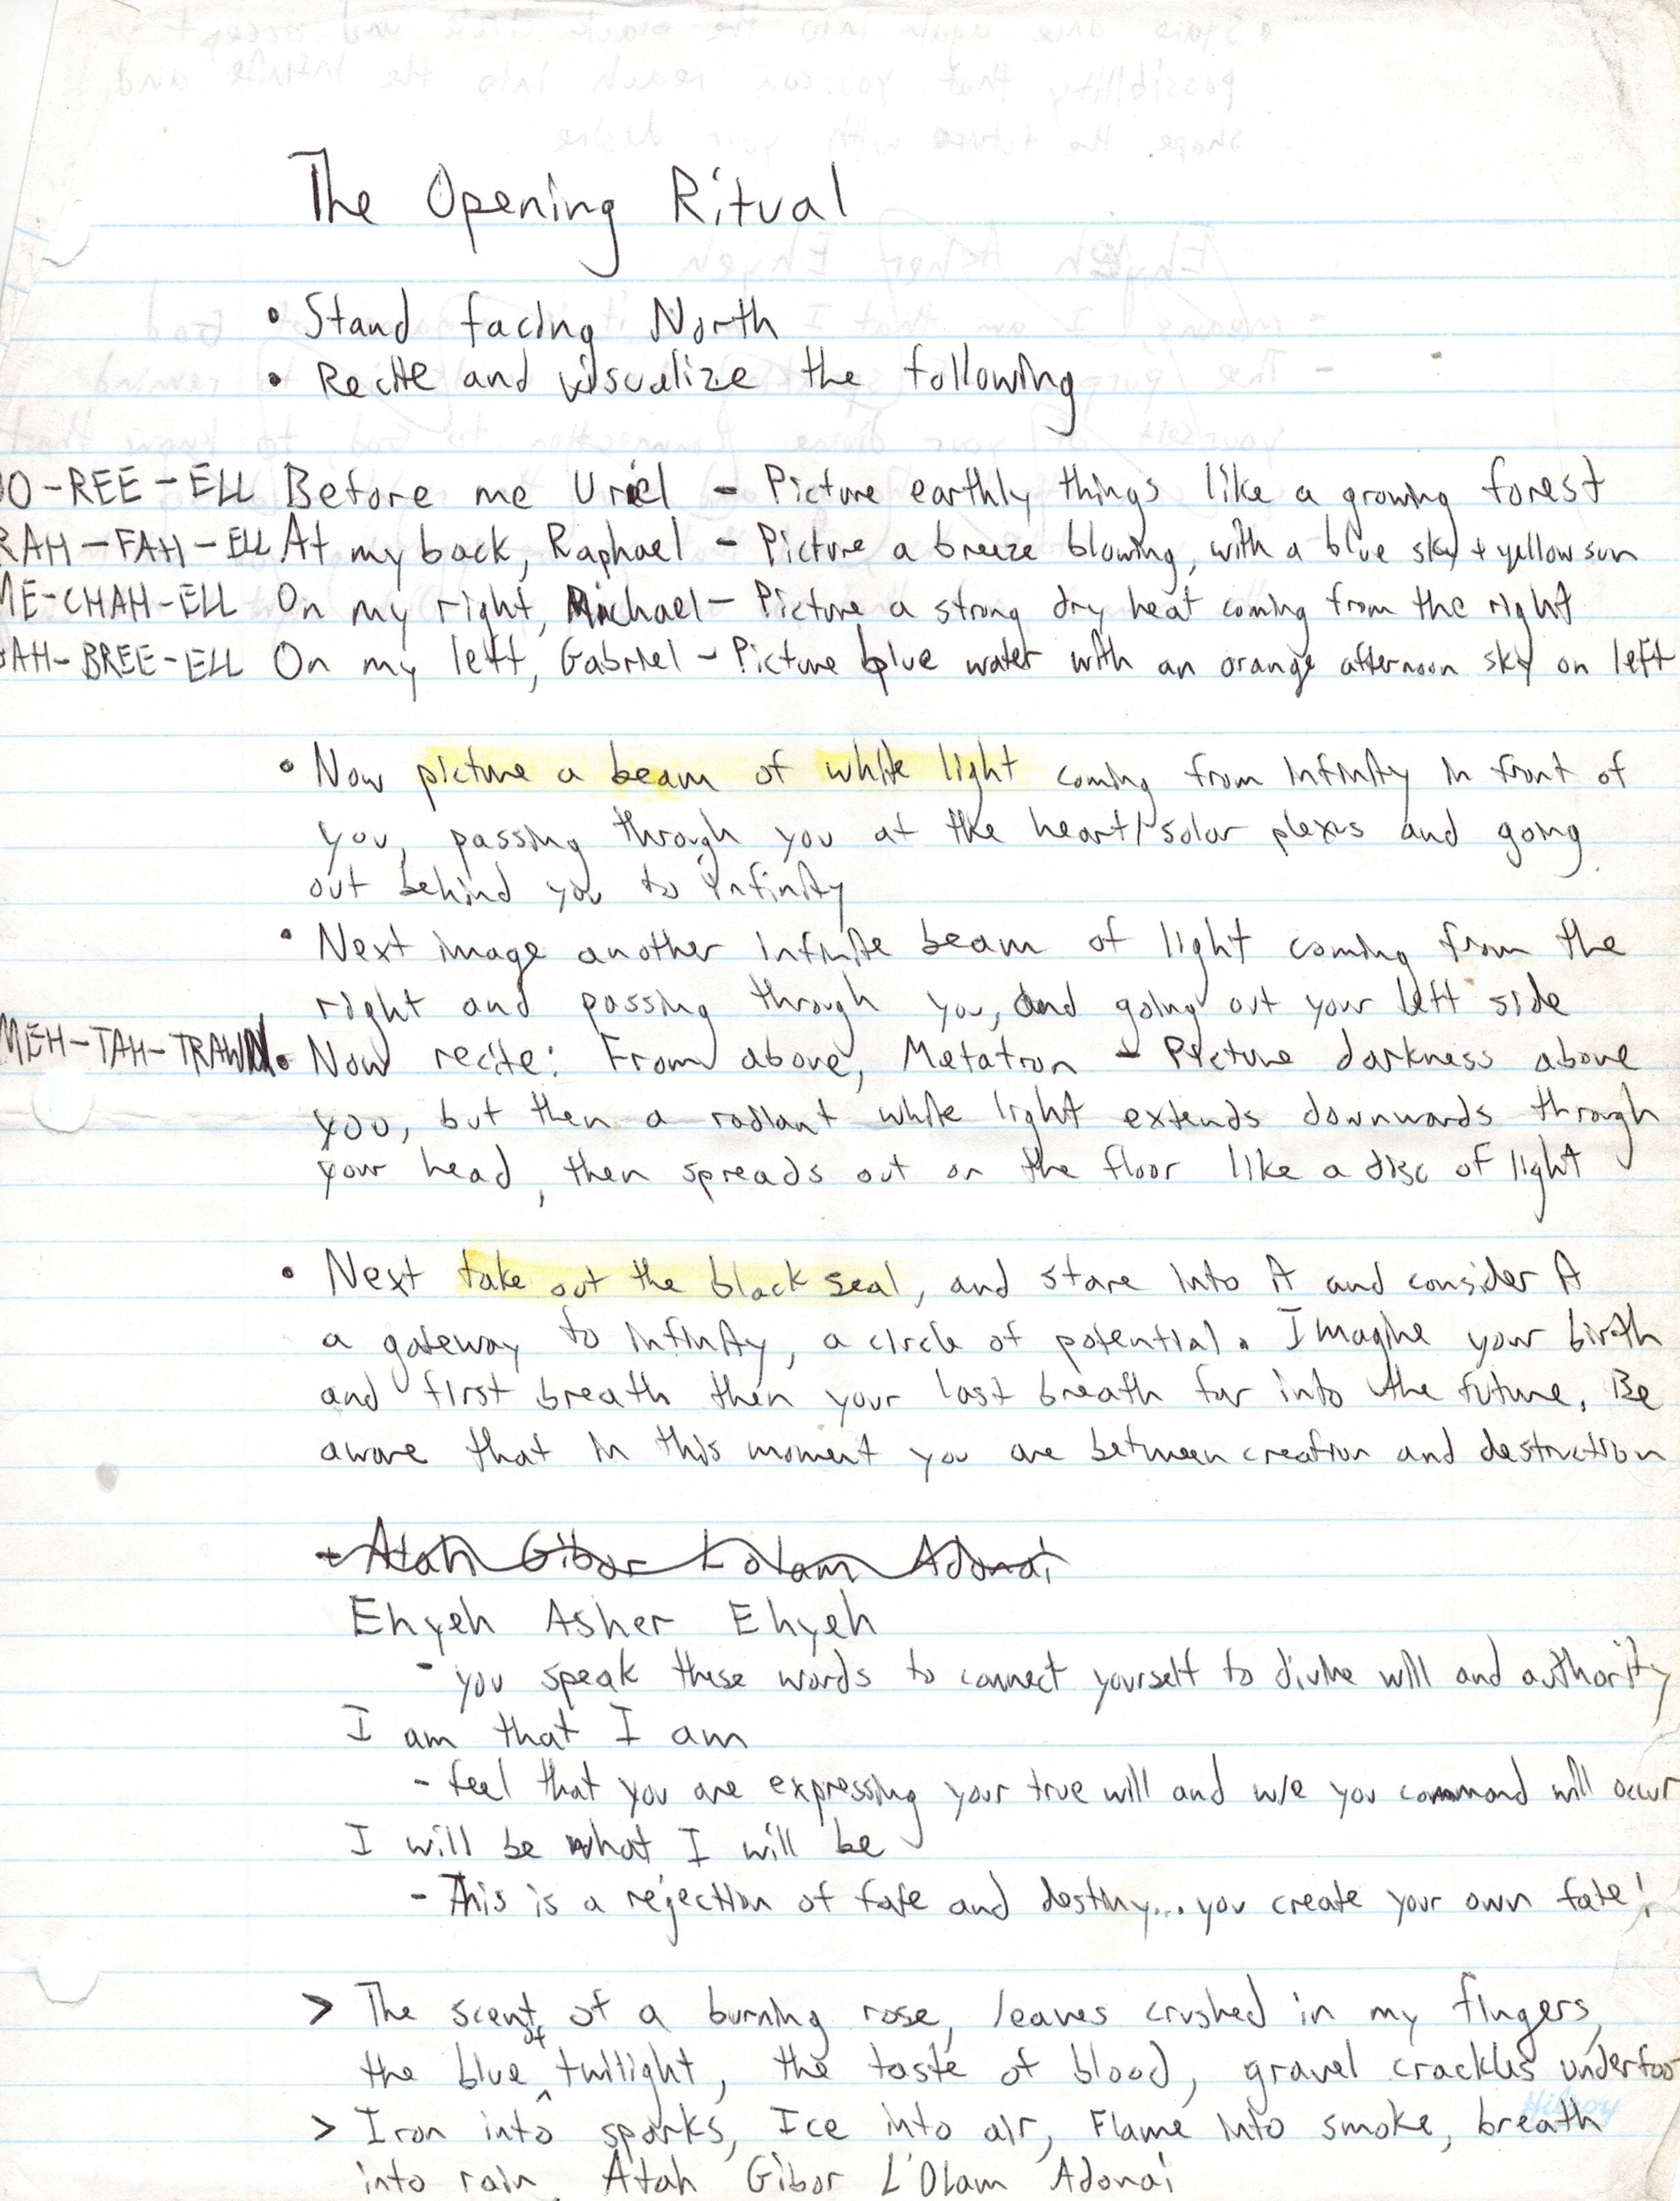 The Opening Ritual
• Stand facing North
• Recite and visualize the following
OO-REE-ELL Before me Uriel - Picture earthly things like a growing forest
RAH-FAH-ELL At my back, Raphael - Picture a breeze blowing, with a blue sky + yellow sun
ME-CHAH-ELL On my right, Michael - Picture a strong dry heat coming from the right
GAH-BREE-ELL On my left, Gabriel - Picture blue water with an orange afternoon sky on left
• Now picture a beam of white light coming from infinity in front of
you, passing through you at the heart/solar plexus and going
out behind you to infinity
• Next image another infinite beam of light coming from the
right and passing through you, and going out your left side
MEH-TAH-TRAWN • Now recite: From above, Metatron - Picture darkness above
you, but then a radiant white light extends downwards through
your head, then spreads out on the floor like a disc of light
• Next take out the black seal, and stare into it and consider it
a gateway to infinity, a circle of potential. Imagine your birth
and first breath then your last breath far into the future. Be
aware that in this moment you are between creation and destruction
- Atah Gibor L'olam Adonai
Ehyeh Asher Ehyeh
- you speak these words to connect yourself to divine will and authority
I am that I am
- feel that you are expressing your true will and w/e you command will occur
I will be what I will be
- This is a rejection of fate and destiny... you create your own fate!
> The scent of a burning rose, leaves crushed in my fingers,
the blue of twilight, the taste of blood, gravel crackles underfoot
> Iron into sparks, Ice into air, Flame into smoke, breath
into rain, Atah Gibor L'Olam Adonai
Hilroy